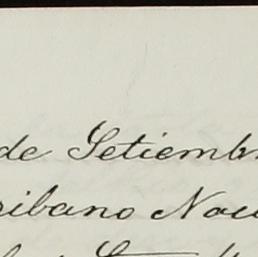 de Setiemb
ribano Nac